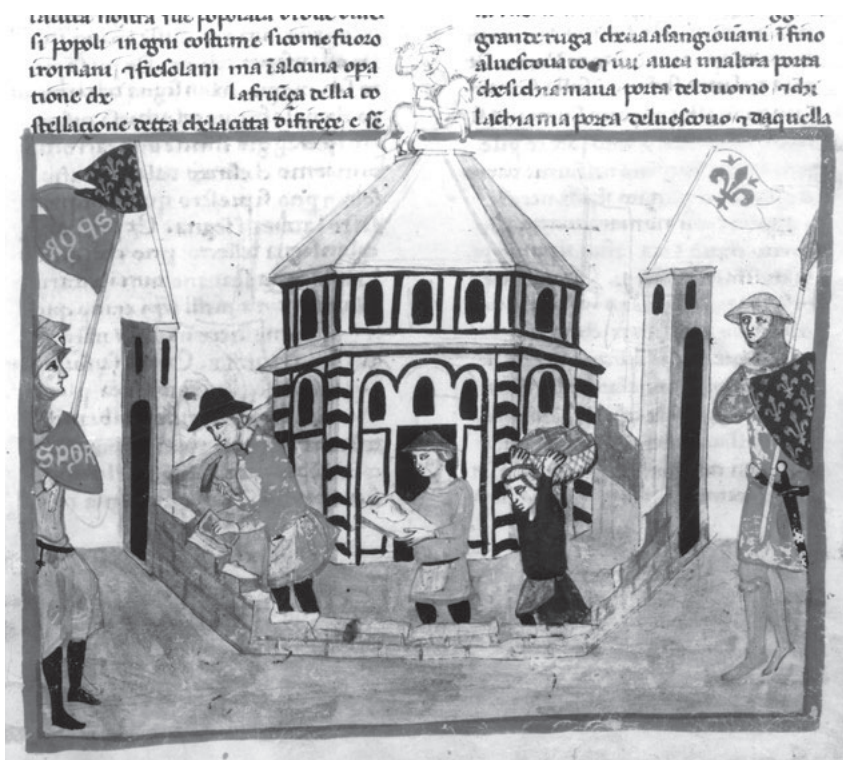 nostra fue popolata
si popoli inogni costume sicome fuoro
iromani ⁊ fiesolani ma ĩ alcuna opa
tione che la fruẽça della co
stellacione detta chela citta difirẽçe e sẽ
grande ruga cheua asangiouani ĩ fino
aluescouato ⁊ iui auea unaltra porta
chesi chiamaua porta delduomo ⁊ chi
lachiama porta deluescouo ⁊ daquella
SPQR
SPQR